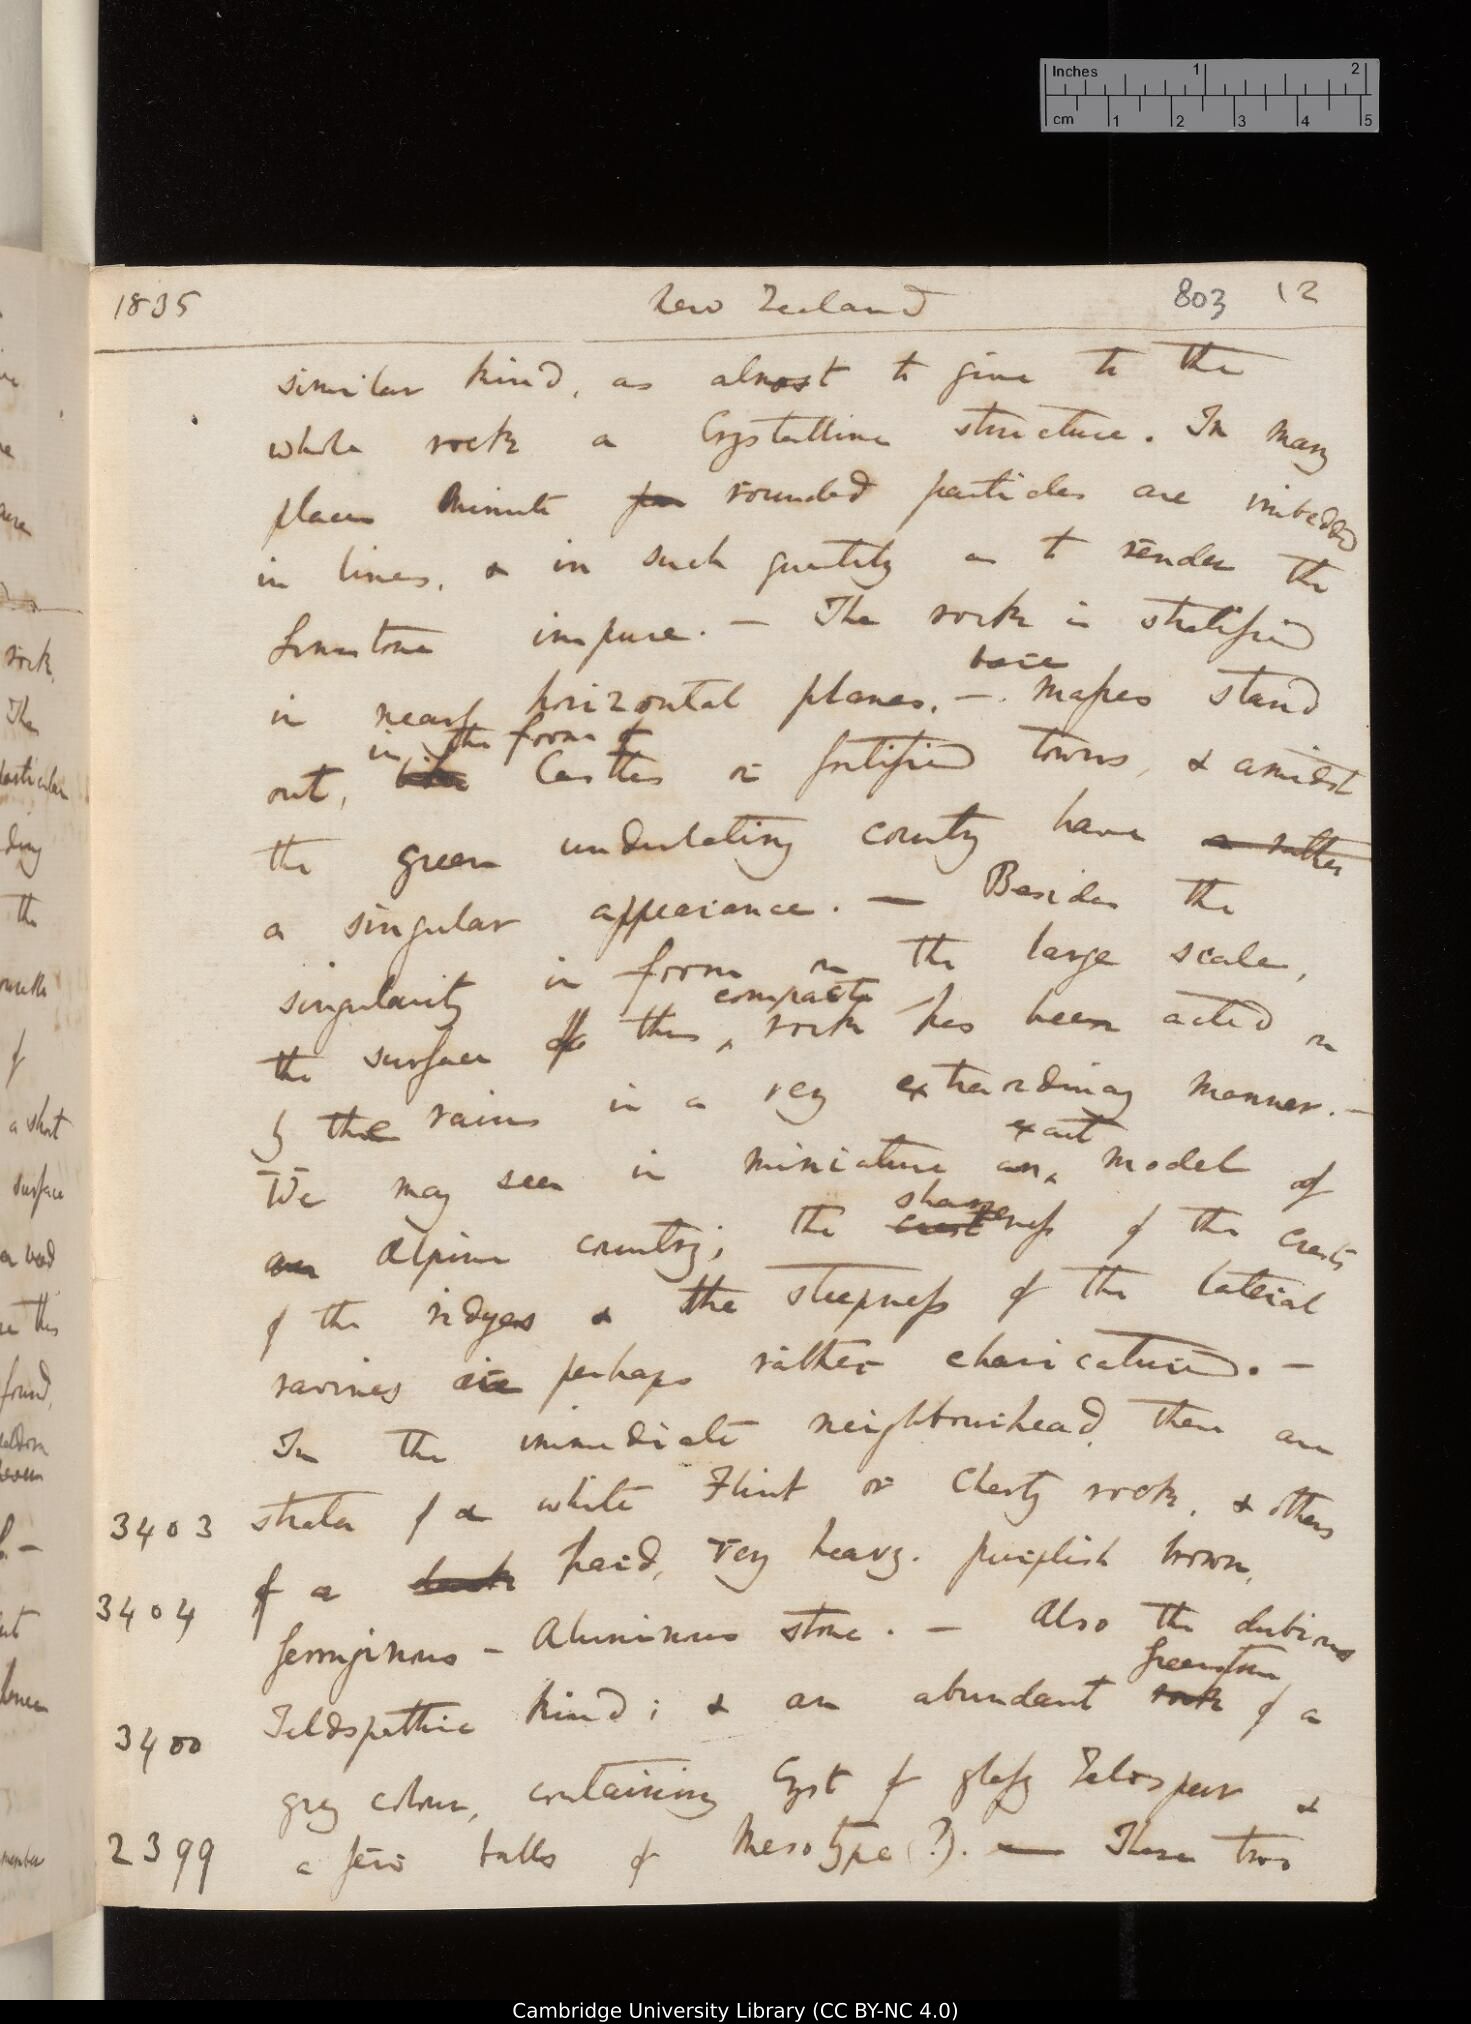 Inches 1 2
cm 1 2 3 4 5
1835 New Zealand 803 12
similar kind, as almost to give to the
whole rock a Crystalline structure. In many
places minute rounded particles are imbedded
in lines, & in such quantity as to render the
Limestone impure. — The rock is stratified
bare
in nearly horizontal planes. — masses stand
in the form of
out, like Castles or fortified towns, & amidst
the green undulating country have a rather
a singular appearance. — Besides the
singularity in form on the large scale,
compact
the surface of this ‸ rock has been acted on
by the rains in a very extraordinary manner. —
exact
We may seen in miniature an ‸ model of
sharp
an Alpine country; the crestness of the crests
of the ridges & the steepness of the lateral
ravines are perhaps rather charicatured. —
In the immediate neighbourhead, there are
3403 strata of a white Flint or Cherty rock, & others
3404 of a dark hard, very heavy, purplish brown,
ferruginous - Aluminous stone. — Also the dubious
Greenstone
3400 Feldspathic kind; & an abundant rock of a
grey colour, containing Cryst of glassy Feldspar &
2399 a few balls of Mesotype (?). — These two
member
found,
The
the
of
a short
surface
rock,
Cambridge University Library (CC BY-NC 4.0)